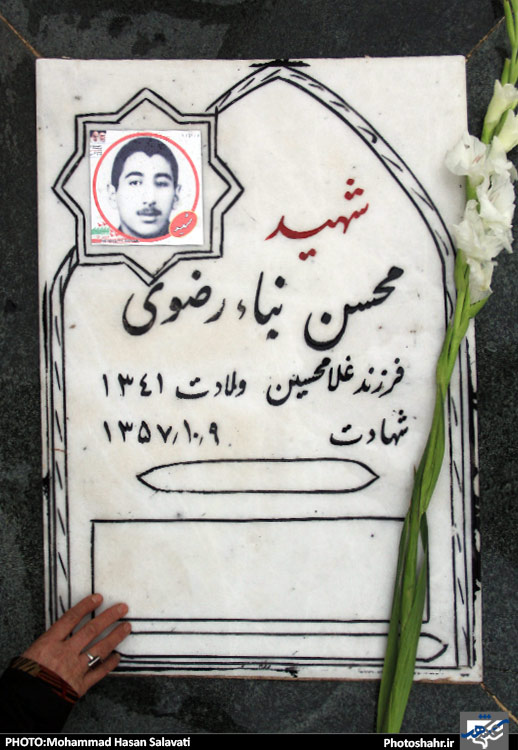 شهید
محسن بناء رضوی
فرزند غلامحسین ولادت ۱۳۴۱
شهادت ۱۳۵۷/۱۰/۹
شهید
PHOTO:Mohammad Hasan Salavati
Photoshahr.ir